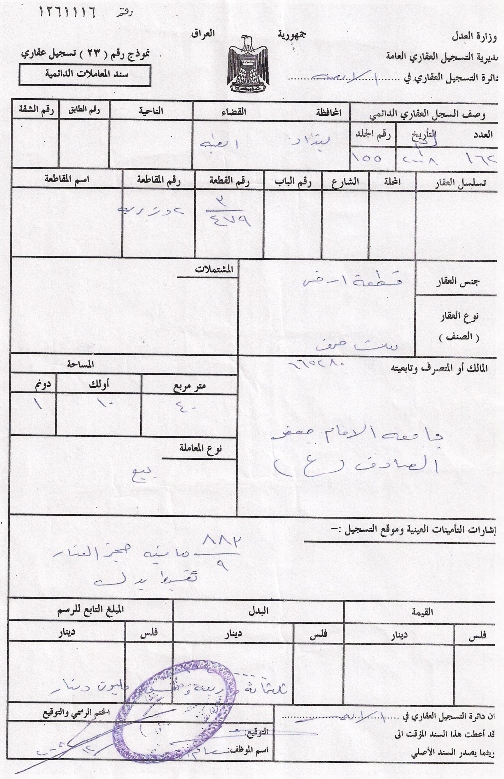 رقم ١٢٦١١١٦
وزارة العدل
جمهورية العراق
مديرية التسجيل العقاري العامة
نموذج رقم (٢٣) تسجيل عقاري
دائرة التسجيل العقاري في
سند المعاملات الدائمية
وصف السجل العقاري الدائمي
المحافظة
القضاء
الناحية
رقم الطابق
رقم الشقة
العدد
التاريخ
رقم المجلد
١٦٢
٢٠٠٨
١٥٥
بغداد
تسلسل العقار
المحلة
الشارع
رقم الباب
رقم القطعة
رقم المقاطعة
اسم المقاطعة
٣/٤٧٩
٢ وزيرية
جنس العقار
قطعة ارض
المشتملات
نوع العقار
(الصنف)
ملك صرف
المالك أو المتصرف وتابعيته
٦٦٥٢٨٠
جامعة الامام جعفر
الصادق (ع)
المساحة
متر مربع
أولك
دونم
٤٠
١٠
١
نوع المعاملة
بيع
إشارات التأمينات العينية وموقع التسجيل :-
٨٨٢/٩ حجز العقار
تقسيط بدل
القيمة
البدل
المبلغ التابع للرسم
فلس
دينار
فلس
دينار
فلس
دينار
ثلثمائة
مليون دينار
ان دائرة التسجيل العقاري في
الختم الرسمي والتوقيع
قد أعطت هذا السند المؤقت الى
التوقيع
ريثما يصدر السند الأصلي
اسم الموظف